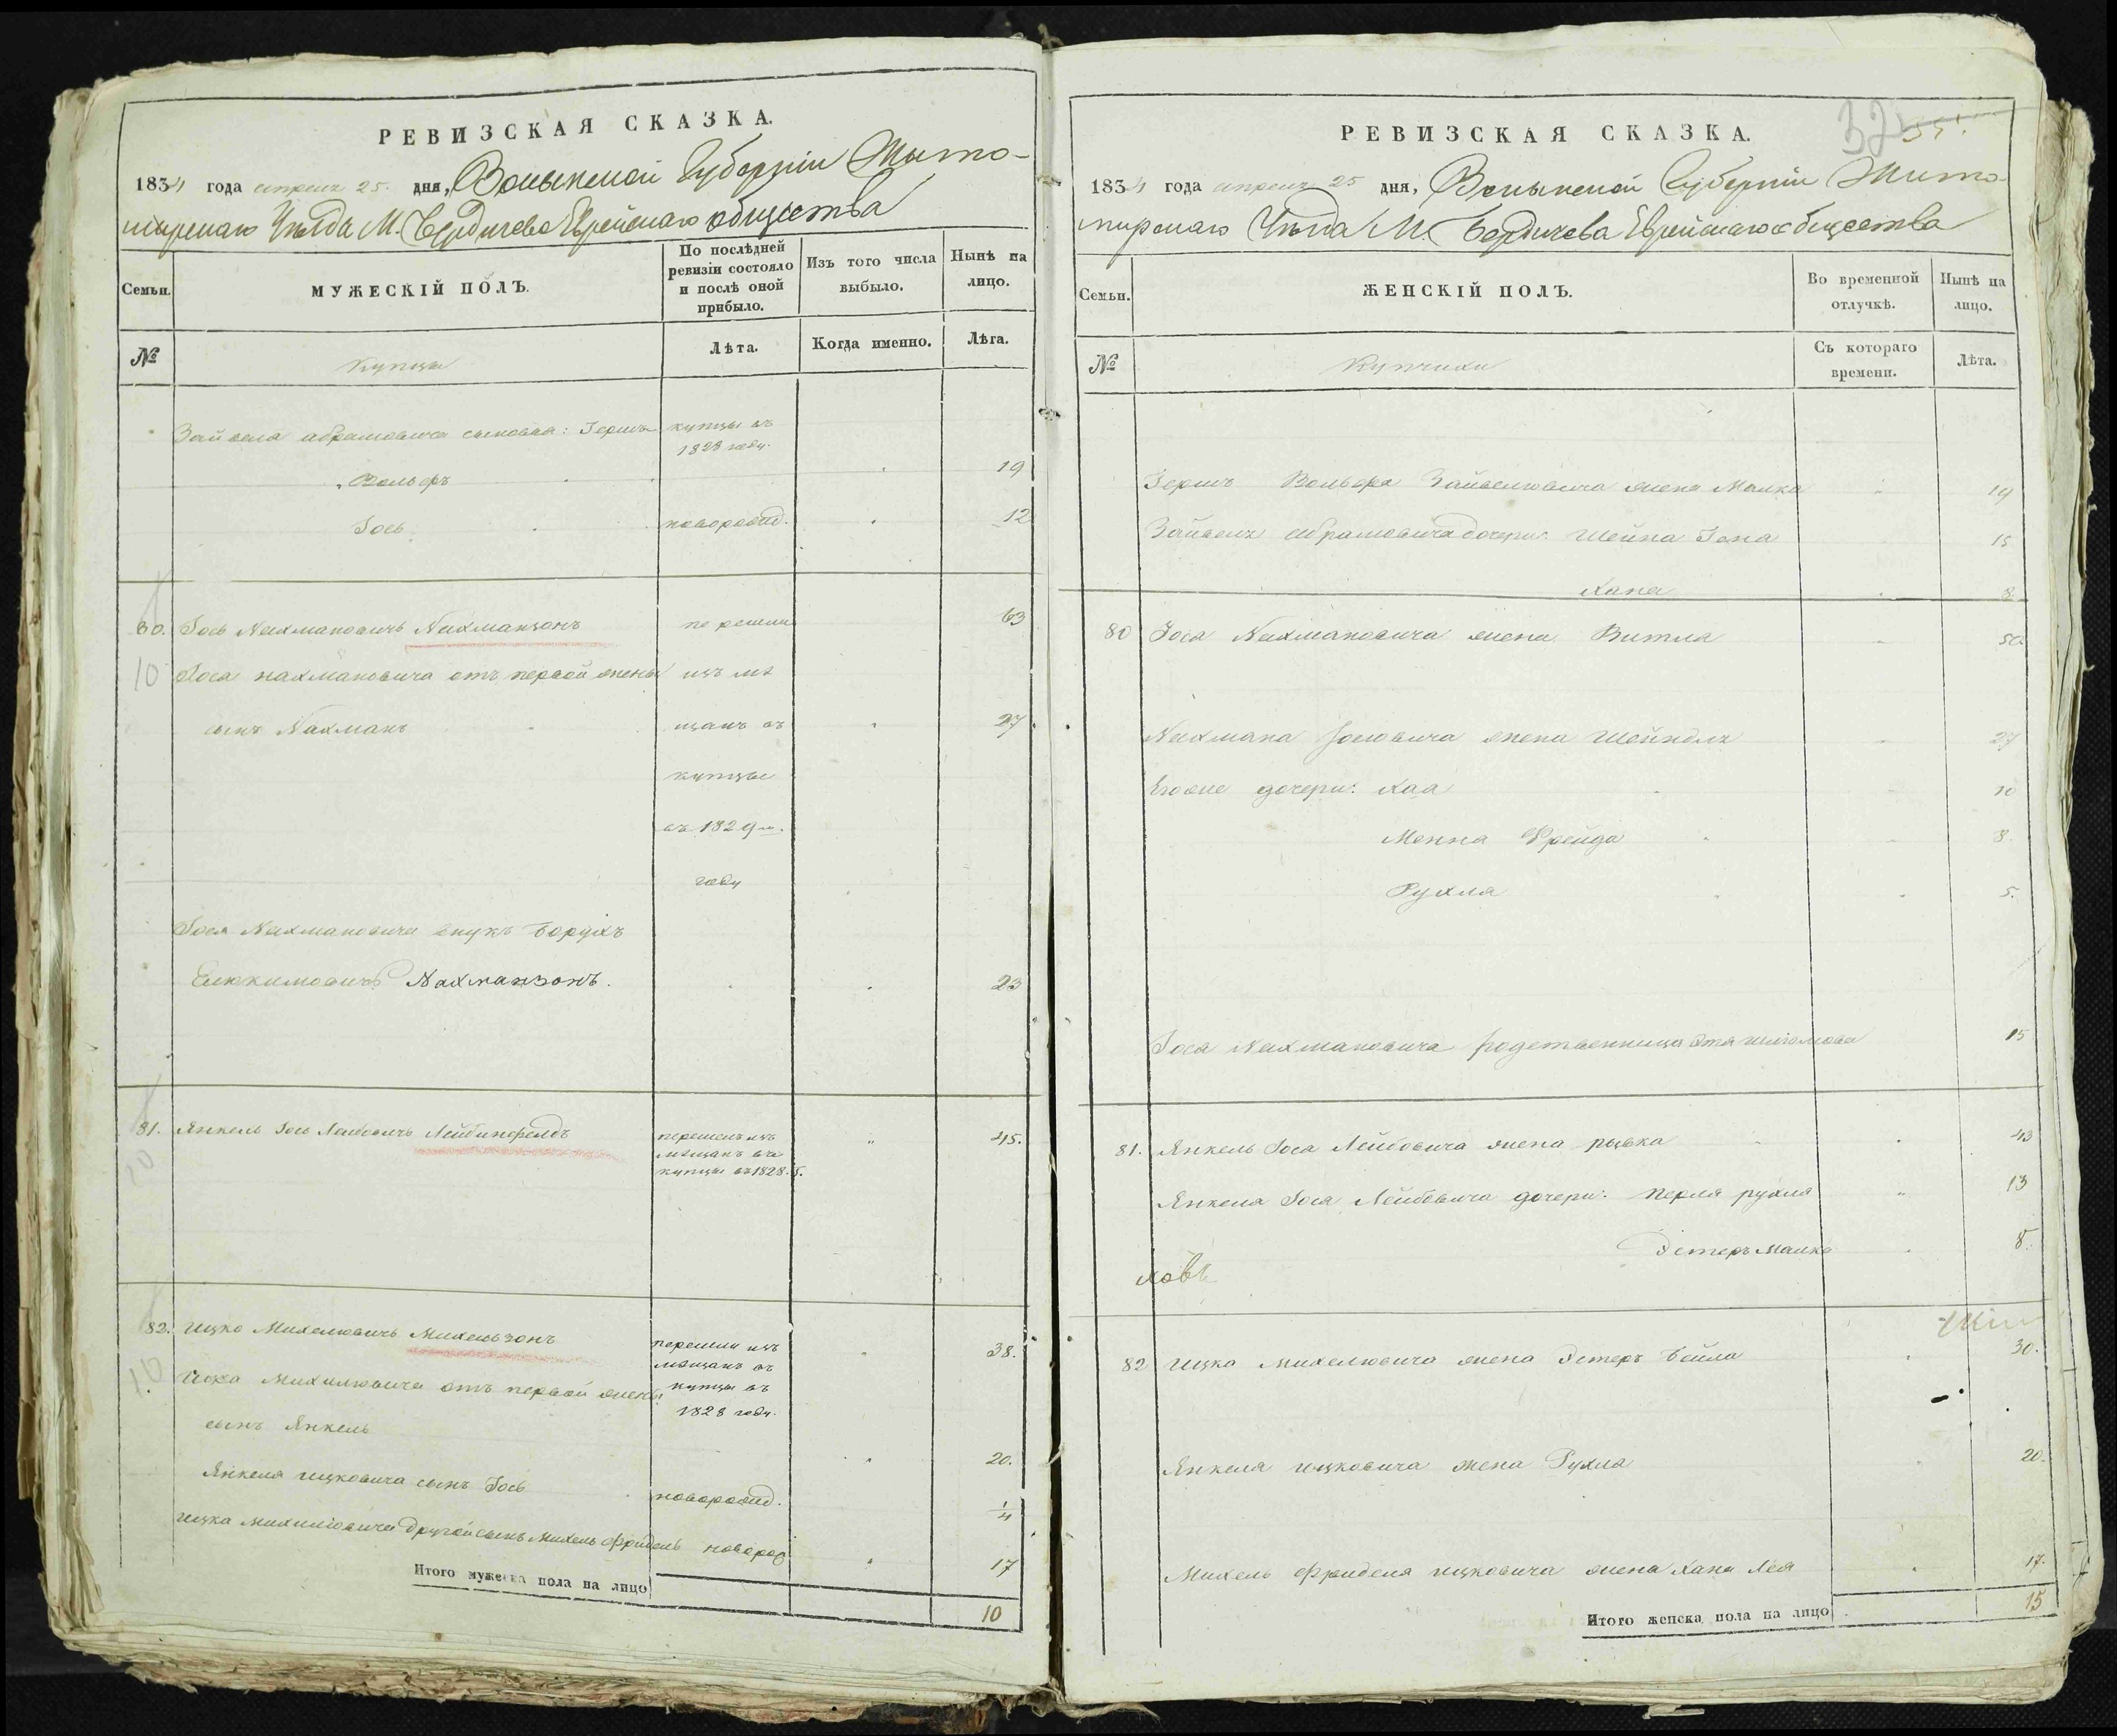 РЕВИЗСКАЯ СКАЗКА.
1834 года апреля 25. дня, Волынской Губерніи Жыто-
мирскаго Уезда М. Бердичева Еврейскаго общества
Семьи.
МУЖЕСКІЙ ПОЛЪ.
По послѣдней ревизіи состояло и послѣ оной прибыло.
Изъ того числа выбыло.
Нынѣ на лицо.
№
купцы
Лѣта.
Когда именно.
Лѣта.
Зайвеля абрамовича сыновья: Гершъ купцы въ
1828 году.
Вольфъ 19
Іось новорожд. 12
80. Іось Нахмановичъ Нахманзонъ перешли 63
10 Іоса нахмановича отъ первой жены изъ мѣ
сынъ Нахманъ щанъ въ 27
купцы
въ 1829м.
году
Іося Нахмановича внукъ Борухъ
Елюкимовичъ Нахманзонъ. 23
81. Янкель Іось Лейбовичъ Лейбинфельдъ перешелъ изъ 45.
10 мѣщанъ въ
купцы въ 1828.г.
82. Ицко Михелювичъ Михельзонъ перешли изъ 38.
мѣщанъ въ
10 Ицка Михелювича отъ первой жены купцы въ
1828 году.
сынъ Янкель 20.
Янкеля ицковича сынъ Іось новорожд. 1/4
ицка михилювича другой сынъ Михель Фридель новорож 17
Итого мужеска пола на лицо 10
32 55.
РЕВИЗСКАЯ СКАЗКА.
1834 года апреля 25 дня, Волынской Губерніи Жито-
мирскаго Уезда М. Бердичева Еврейскаго общества
Семьи.
ЖЕНСКІЙ ПОЛЪ.
Во временной отлучкѣ.
Нынѣ на лицо.
№
Купчихи
Съ котораго времени.
Лѣта.
Гершъ Вольфа Зайвелювича жена Малка 19
Зайвеля абрамовича дочери: Шейна 15
Хана 8
80 Іоса Нахмановича жена Витля 50.
Нахмана Іосювича жена Шейндля 27
Егоже дочери: Хая 10
Менна Фрейда 8.
Рухля 5.
Іоса Нахмановича родственница Эта 15
81. Янкель Іоса Лейбовича жена рывка 43
Янкеля Іося Лейбовича дочери: перля рухля 13
Эстеръ Малка 8.
82 Ицка михелювича жена Эстеръ Бейла 30.
Янкеля ицковича жена Рухля 20.
Михель Фриделя ицковича жена Хана Лея 17.
Итого женска пола на лицо 15